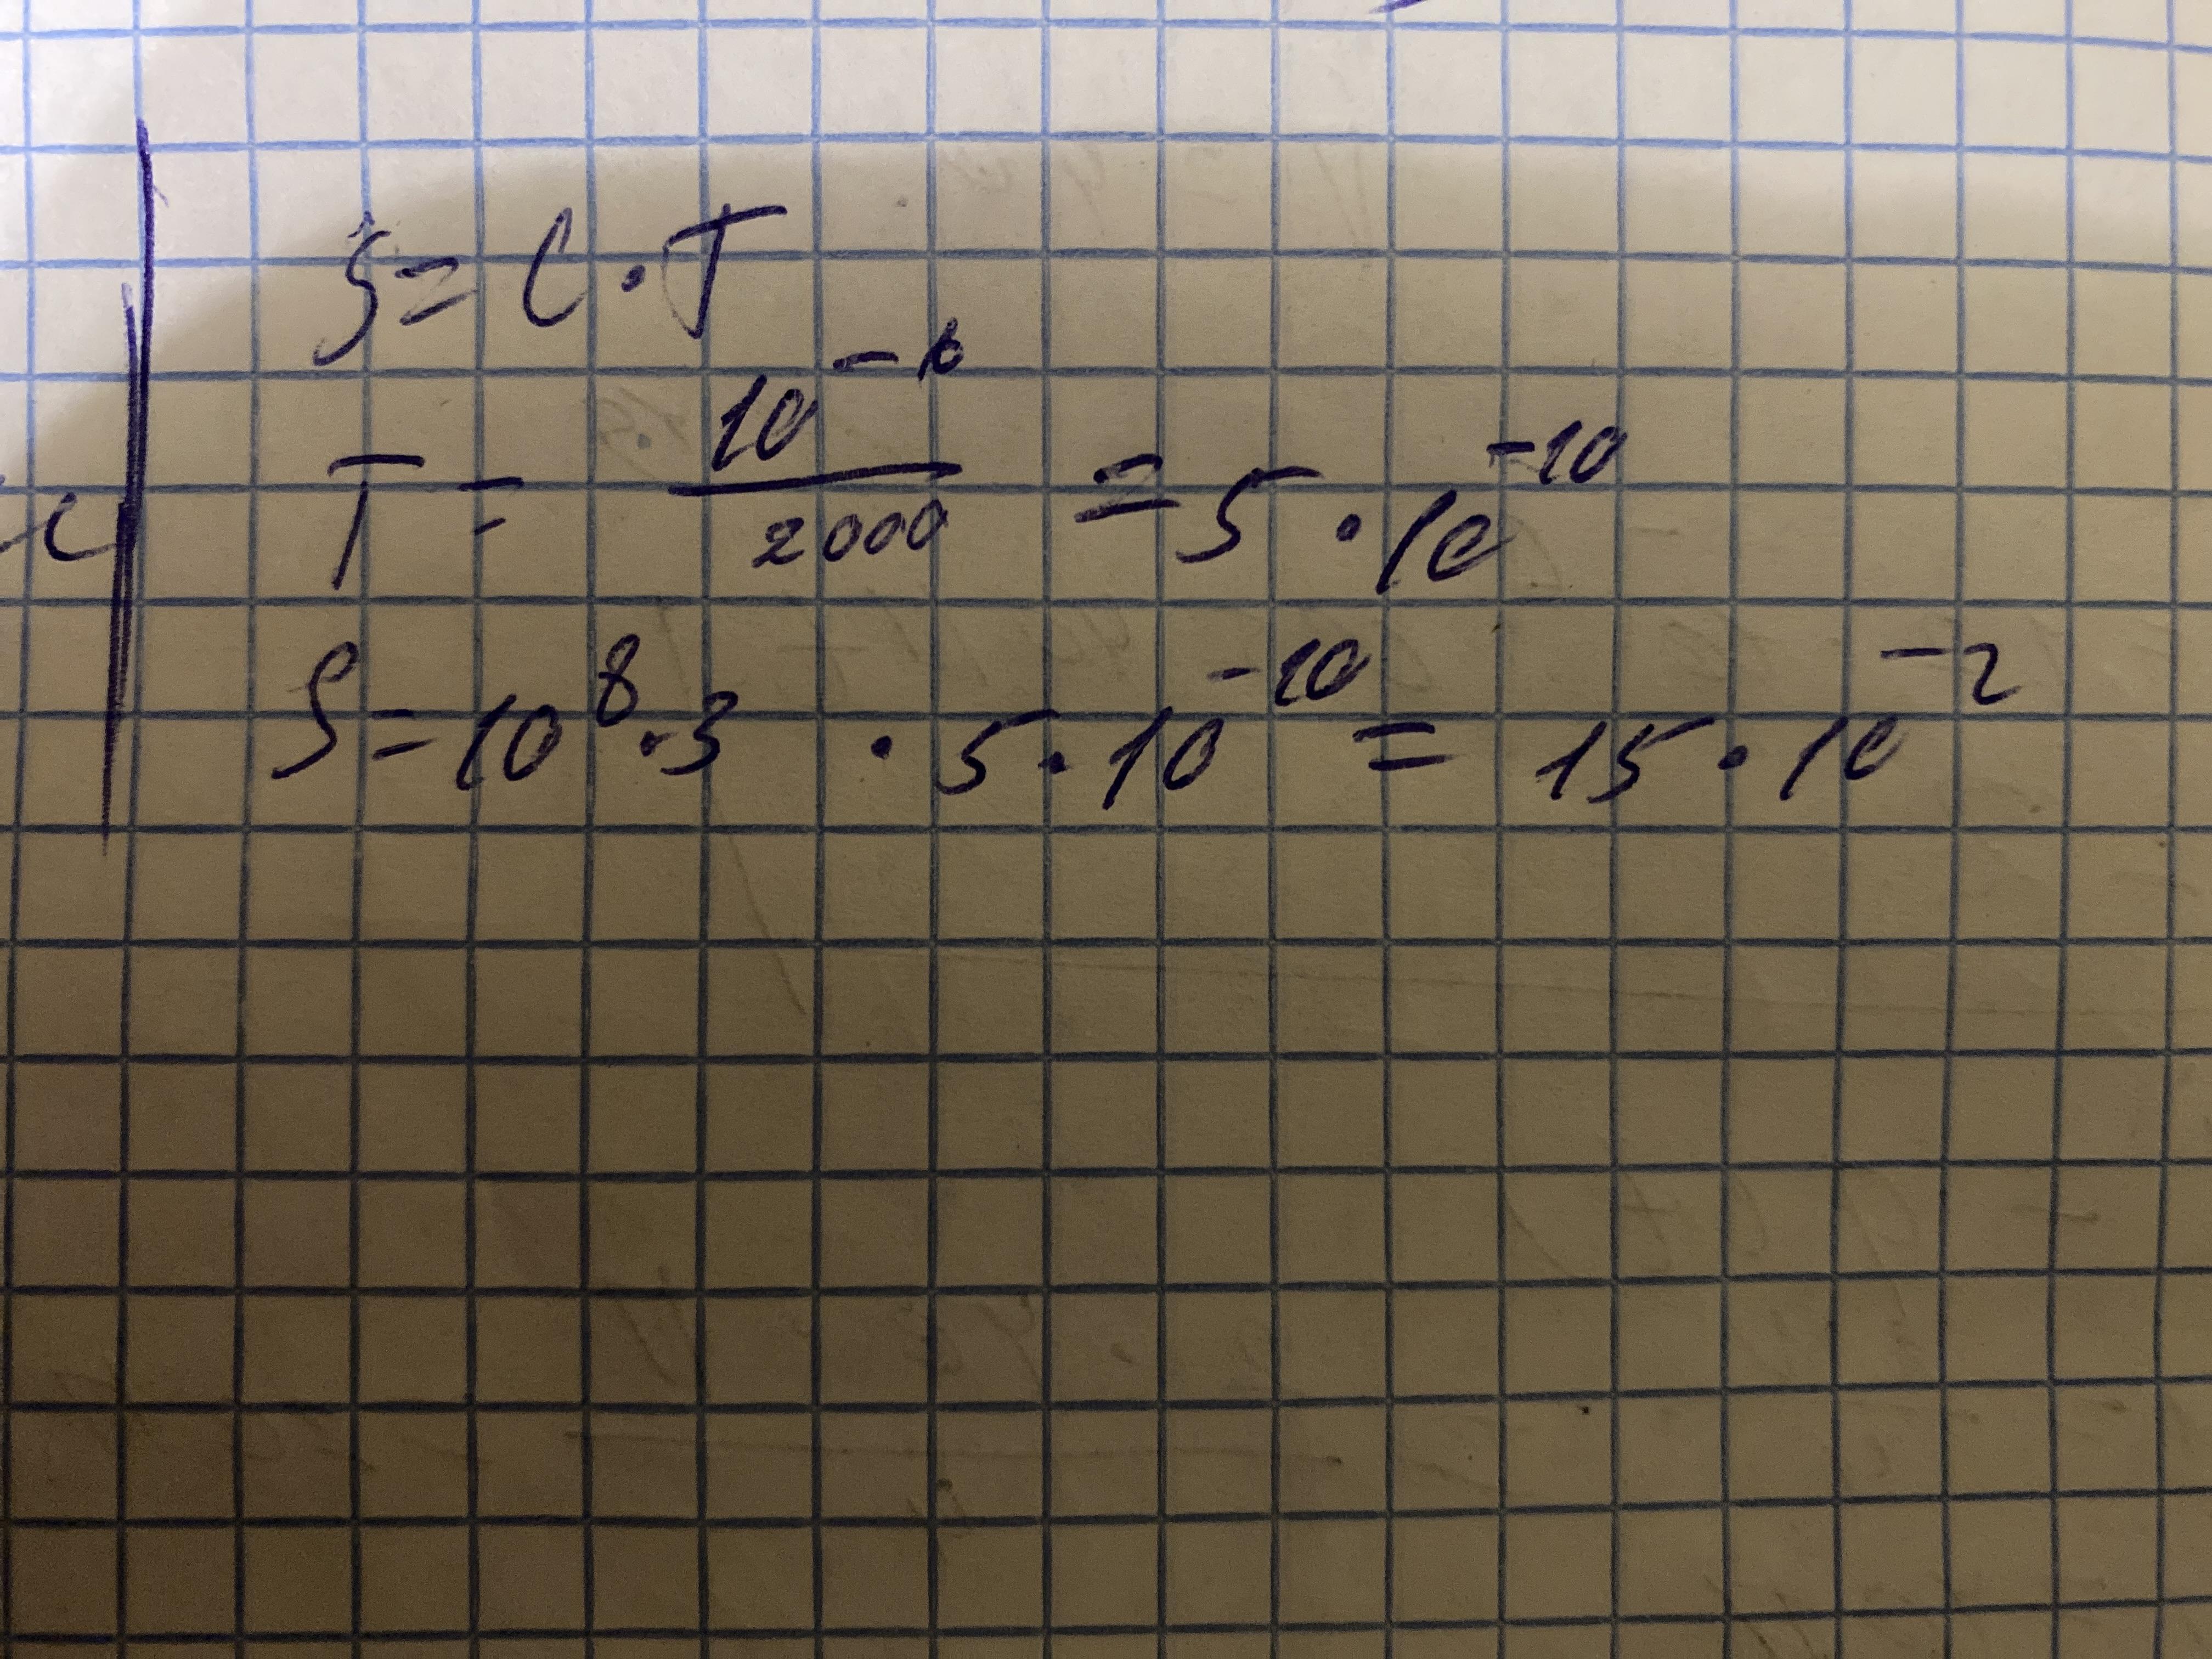 S = C · T
T = 10^-6 / 2000 = 5 · 10^-10
S = 10^8 · 3 · 5 · 10^-10 = 15 · 10^-2